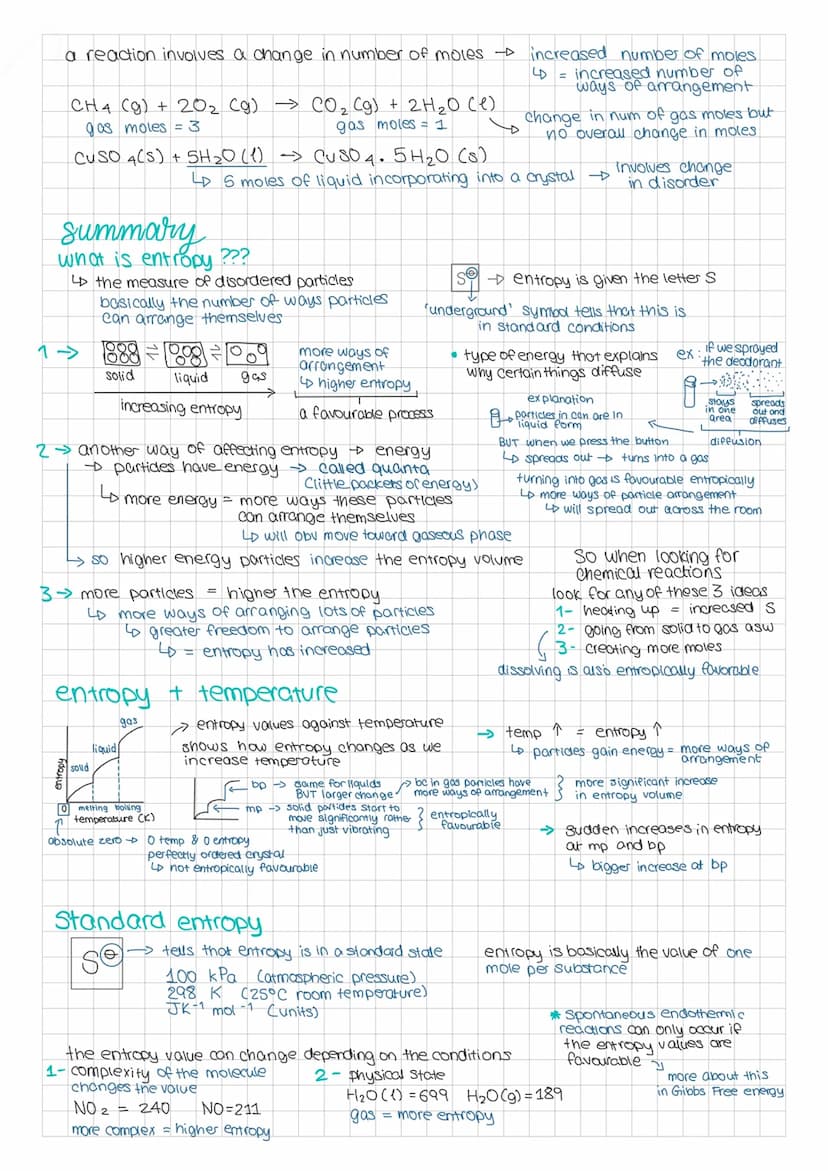 a reaction involves a change in number of moles → increased number of moles
↳ = increased number of
ways of arrangement
CH4 (g) + 2O2 (g) → CO2 (g) + 2H2O (l)
gas moles = 3 gas moles = 1
change in num of gas moles but
no overall change in moles
CuSO4(s) + 5H2O(l) → CuSO4.5H2O (s)
↳ 5 moles of liquid incorporating into a crystal → involves change
in disorder
summary
what is entropy ???
↳ the measure of disordered particles
basically the number of ways particles
can arrange themselves
S⊖ → entropy is given the letter S
'underground' symbol tells that this is
in standard conditions
1 →
solid liquid gas
increasing entropy
more ways of
arrangement
↳ higher entropy
a favourable process
• type of energy that explains
why certain things diffuse
ex: if we sprayed
the deodorant
stays
in one
area
spreads
out and
diffuses
diffusion
explanation
particles in can are in
liquid form
BUT when we press the button
↳ spreads out → turns into a gas
turning into gas is favourable entropically
↳ more ways of particle arrangement
↳ will spread out across the room
2 → another way of affecting entropy → energy
→ particles have energy → called quanta
(little packets of energy)
↳ more energy = more ways these particles
can arrange themselves
↳ will obv move toward gaseous phase
↳ so higher energy particles increase the entropy volume
3 → more particles = higher the entropy
↳ more ways of arranging lots of particles
↳ greater freedom to arrange particles
↳ = entropy has increased
So when looking for
chemical reactions
look for any of these 3 ideas
1- heating up = increased S
2- going from solid to gas asw
3- creating more moles
dissolving is also entropically favorable
entropy + temperature
entropy
solid
liquid
gas
0 melting boiling
temperature (K)
absolute zero → 0 temp & 0 entropy
perfectly ordered crystal
↳ not entropically favourable
→ entropy values against temperature
shows how entropy changes as we
increase temperature
bp → same for liquids
BUT larger change
bc in gas particles have
more ways of arrangement
more significant increase
in entropy volume
mp → solid particles start to
move significantly rather
than just vibrating
entropically
favourable
→ temp ↑ = entropy ↑
↳ particles gain energy = more ways of
arrangement
→ sudden increases in entropy
at mp and bp
↳ bigger increase at bp
Standard entropy
S⊖ → tells that entropy is in a standard state
100 kPa (atmospheric pressure)
298 K (25°C room temperature)
JK-1 mol-1 (units)
entropy is basically the value of one
mole per substance
* Spontaneous endothermic
reactions can only occur if
the entropy values are
favourable
more about this
in Gibbs Free energy
the entropy value can change depending on the conditions
1- complexity of the molecule
changes the value
NO2 = 240 NO=211
more complex = higher entropy
2- physical state
H2O(l) = 699 H2O(g)=189
gas = more entropy